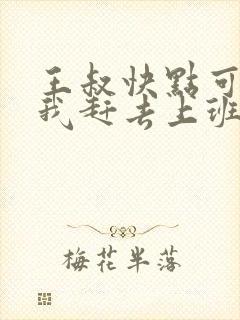 王叔快點可
我赶去上班
梅花半落